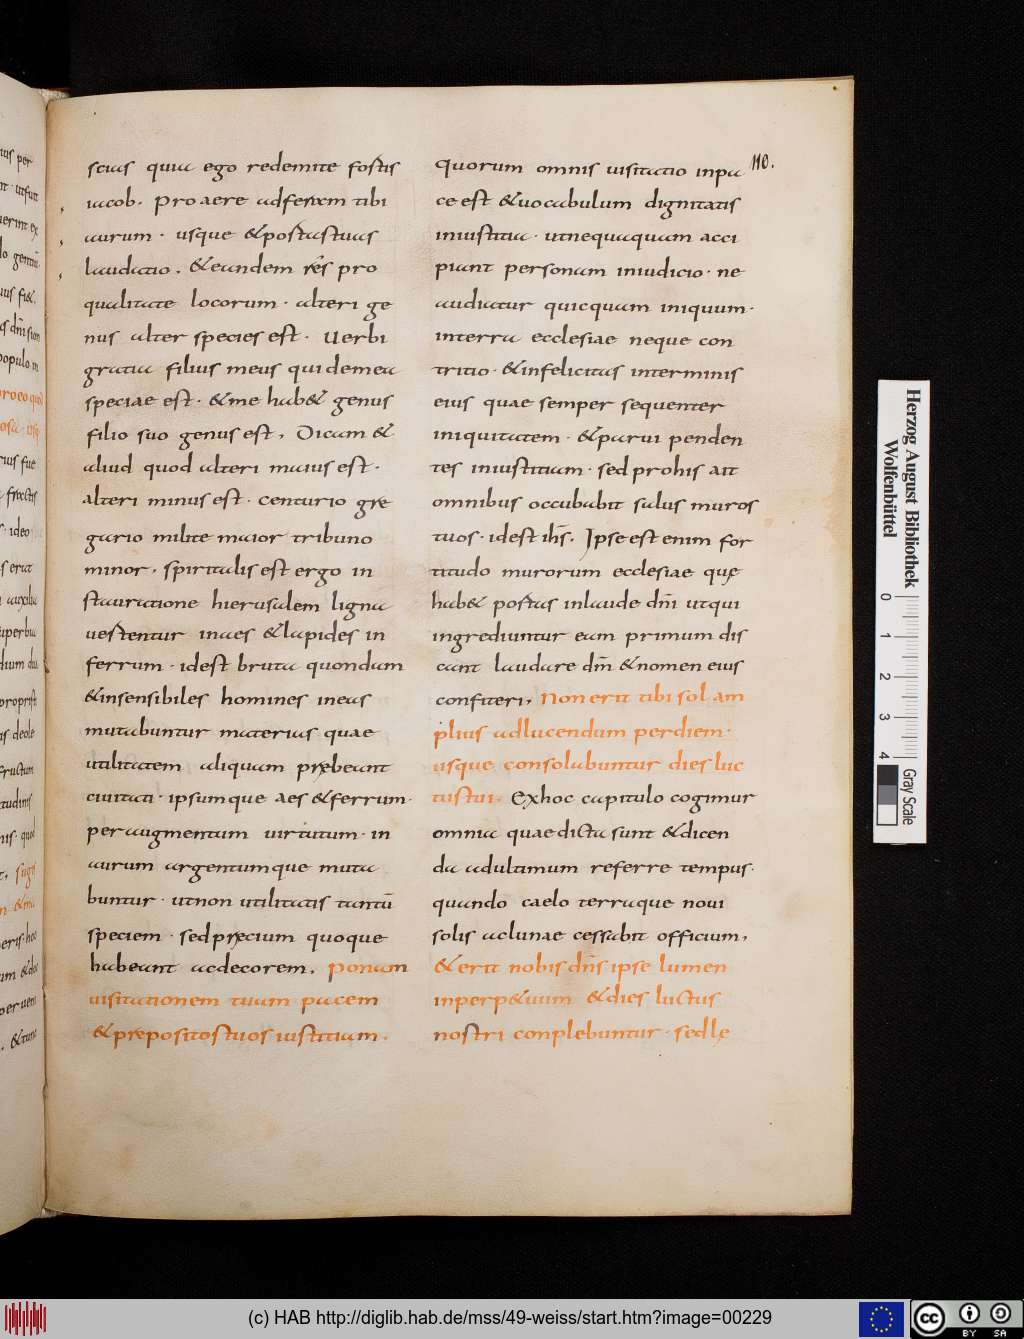 scias quia ego redemite fostis
iacob. Pro aere adferam tibi
aurum · usque &postastuas
laudatio. &eandem res pro
qualitate locorum · alteri ge
nus alter species est · Uerbi
gratia filius meus qui demea
speciae est · &me hab& genus
filio suo genus est, Dicam &
aliud quod alteri maius est ·
alteri minus est · centurio gre
gario milite maior tribuno
minor, spiritalis est ergo in
stauratione hierusalem ligna
uestentur inaes &lapides in
ferrum · idest bruta quondam
&insensibiles homines ineas
mutabuntur materias quae
utilitatem aliquam prębeant
ciuitati · ipsumque aes &ferrum ·
per augmentum uirtutum · in
aurum argentumque muta
buntur · utnon utilitatis tantū
speciem · sedprecium quoque
habeant acdecorem, ponam
uisitationem tuam pacem
&prepositostuos iustitiam.
110.
quorum omnis uisitatio inpa
ce est &uocabulum dignitatis
iniustitia · utnequaquam acci
piant personam iniudicio · ne
audiatur quicquam iniquum ·
interra ecclesiae neque con
tritio · &infelicitas interminis
eius quae semper sequenter
iniquitatem · &parui penden
tes iniustitiam · sed prohis ait
omnibus occubabit salus muros
tuos · idest ihs̄. Ipse est enim for
titudo murorum ecclesiae quę
hab& postas inlaude dn̄i utqui
ingrediuntur eam primum dis
cant laudare dm̄ &nomen eius
confiteri, Non erit tibi sol am
plius adlucendum perdiem ·
usque consolabuntur dies luc
tustui. Exhoc capitulo cogimur
omnia quae dicta sunt &dicen
da adultimum referre tempus ·
quando caelo terraque noui
solis aclunae cessabit officium,
&erit nobis dn̄s ipse lumen
inperp&uum &dies luctus
nostri complebuntur · sedle
Herzog August Bibliothek
Wolfenbüttel
0 1 2 3 4
Gray Scale
(c) HAB http://diglib.hab.de/mss/49-weiss/start.htm?image=00229
cc BY SA